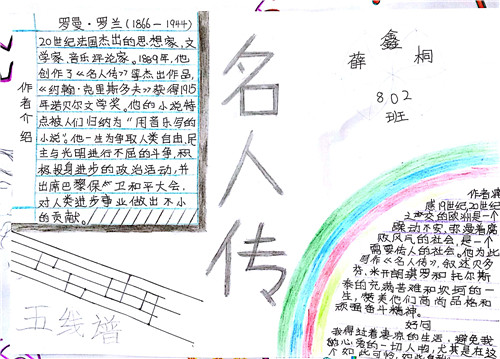 罗曼·罗兰(1866-1944)
20世纪法国杰出的思想家,文
学家,音乐评论家。1889年,他
创作了《名人传》等杰出作品,
《约翰·克里斯多夫》获得1915
年诺贝尔文学奖。他的小说特
点被人们归纳为“用音乐写的
小说”。他一生为争取人类自由,民
主与光明进行不屈的斗争,积
极投身进步的政治活动,并
出席巴黎保卫和平大会,
对人类进步事业做出不小
的贡献。
作者介绍
名人传
薛鑫桐
802
班
五线谱
作者
19世纪20世纪
之交的欧洲是一个
躁动不安,弥漫着腐
败风气的社会,是一个
需要伟人的社会。他为此
创作《名人传》,叙述贝多
芬,米开朗琪罗和托尔斯
泰的充满苦难和坎坷的一
生,赞美他们高尚品格和
顽强奋斗精神。
好句
我得过着凄凉的生活,避免我
的心爱的一切人啦,尤其是在这
个如此可怜,